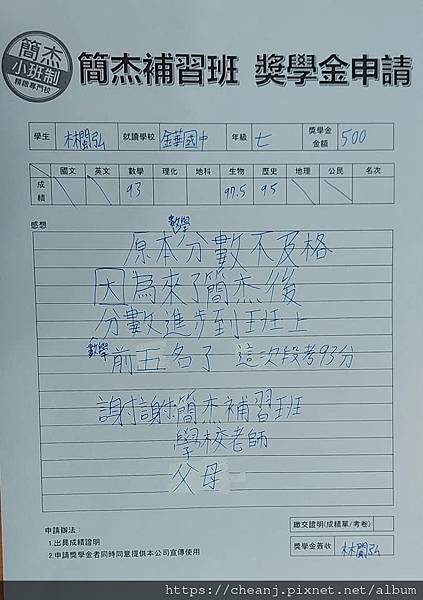 簡杰
小班制
精緻專門校
簡杰補習班 獎學金申請
學生 林閩弘 就讀學校 金華國中 年級 七 獎學金金額 500
國文 英文 數學 理化 地科 生物 歷史 地理 公民 名次
成績 93 97.5 95
感想
數學
原本分數不及格
因為來了簡杰後
分數進步到班上
數學前五名了 這次段考93分
謝謝簡杰補習班
學校老師
父母
申請辦法：
1.出具成績證明
2.申請獎學金者同時同意提供本公司宣傳使用
繳交證明(成績單/考卷)
獎學金簽收 林閩弘
https://cheanj.pixnet.net/album